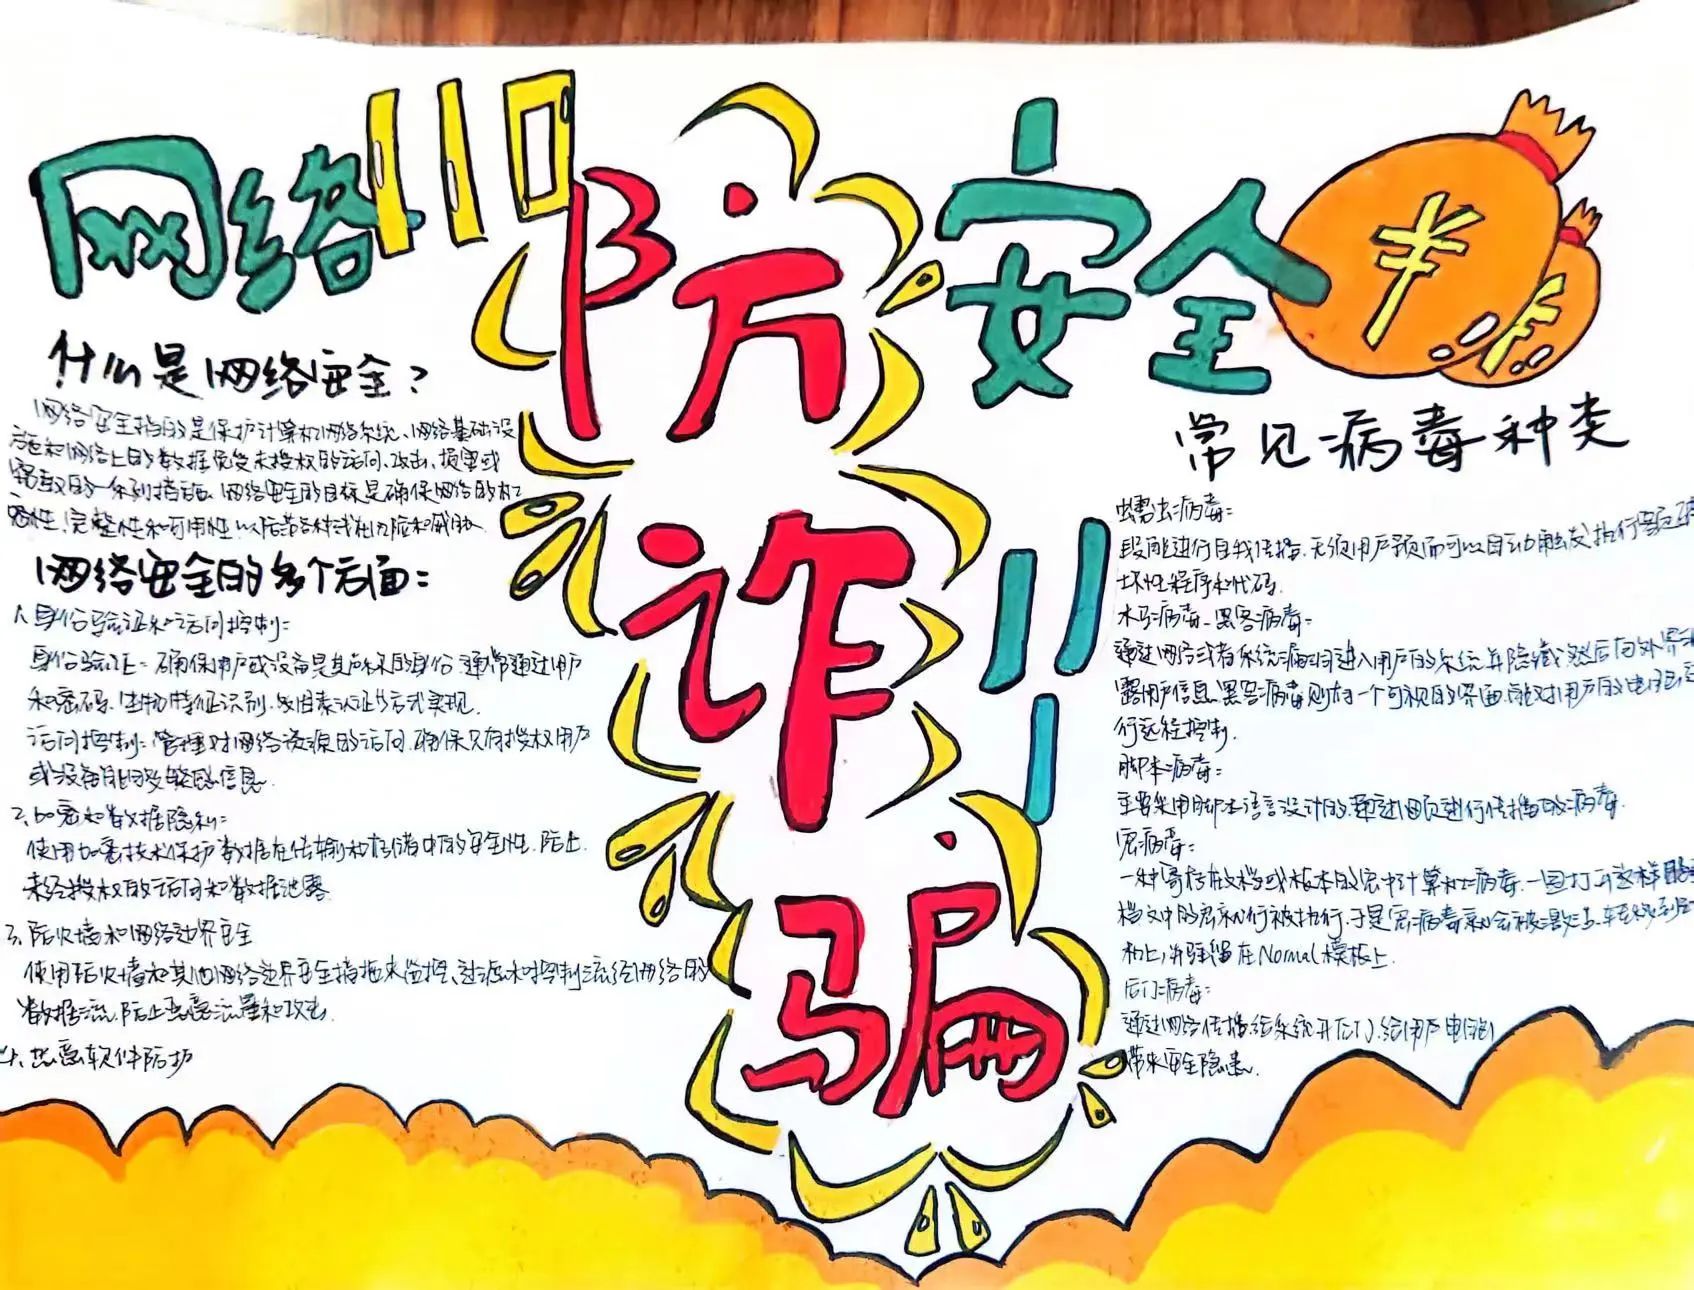 网络110
防诈骗
安全
¥
¥
什么是网络安全?
网络安全指的是保护计算机网络系统、网络基础设
施和网络上的数据免受未授权的访问、攻击、损害或
窃取的一系列措施。网络安全的目标是确保网络的机
密性、完整性和可用性,以防范各种或和威胁.
网络安全的多个方面:
1、身份验证和访问控制:
身份验证:确保用户或设备是其声称的身份.通常通过用户
和密码、生物特征识别、双因素认证等方式实现.
访问控制:管理对网络资源的访问,确保只有授权用户
或设备能敏感信息.
2、加密和数据隐私:
使用加密技术保护数据在传输和存储中的安全性,防止
未经授权的访问和数据泄露
3、防火墙和网络边界安全
使用防火墙和其他网络边界安全措施来监控、过滤和控制流经网络的
数据流,防止恶意流量和攻击.
4、恶意软件防护
常见病毒种类
蠕虫病毒:
段能进行自我传播,无须用户预而可以自动触发执行
坏性程序和代码.
木马病毒、黑客病毒:
通过网络或者系统漏洞进入用户的系统并隐藏,然后向外界
露用户信息,黑客病毒则有一个可视的界面,能对用户的电
行远程控制.
脚本病毒:
主要采用脚本语言设计的,通过网页进行传播的病毒.
宏病毒:
一种寄存在文档或模板的宏中计算机病毒.一旦打开这样
档文中的宏就行被执行,于是宏病毒就会被激活,转移到
机上,并驻留在Normal模板上.
后门病毒:
通过网络传播,给系统开后门,给用户电脑
带来安全隐患.